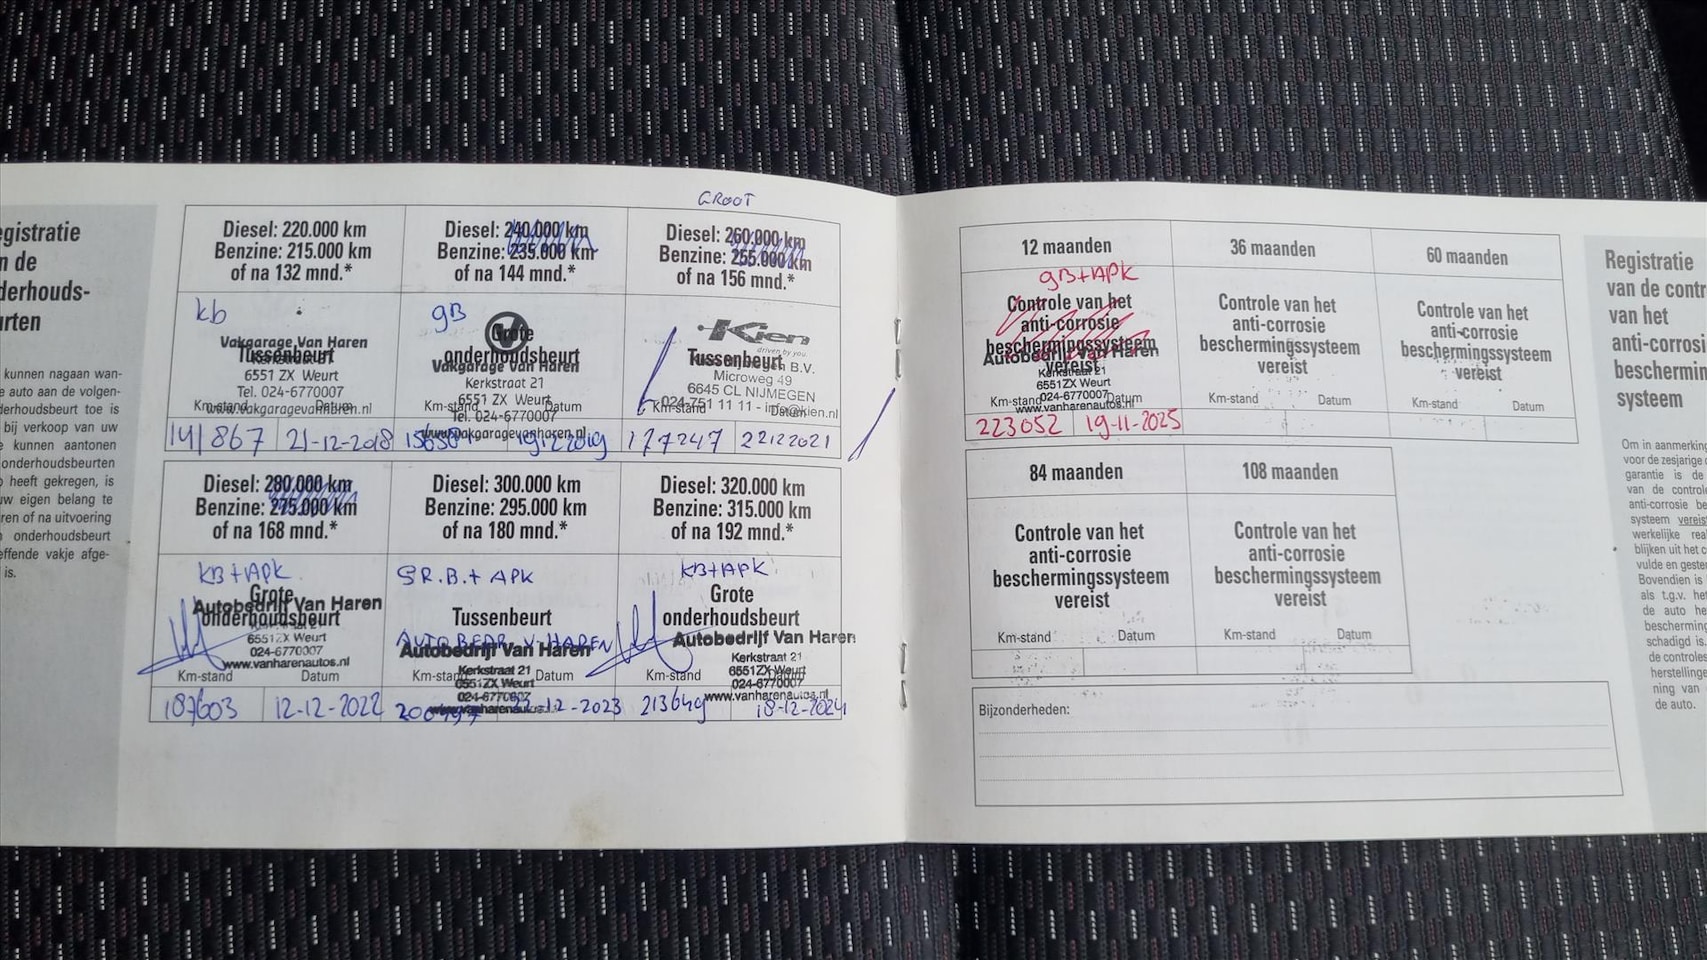 egistratie
n de
derhouds-
urten
kunnen nagaan wan-
e auto aan de volgen-
derhoudsbeurt toe is
bij verkoop van uw
e kunnen aantonen
onderhoudsbeurten
heeft gekregen, is
uw eigen belang te
ren of na uitvoering
onderhoudsbeurt
effende vakje afge-
is.
GROOT
Diesel: 220.000 km
Benzine: 215.000 km
of na 132 mnd.*
kb
Vakgarage Van Haren
Tussenbeurt
6551 ZX Weurt
Tel. 024-6770007
www.vakgaragevanharen.nl
Km-stand Datum
141867 21-12-2018
Diesel: 240.000 km
Benzine: 235.000 km
of na 144 mnd.*
gB
Grote
onderhoudsbeurt
Vakgarage Van Haren
Kerkstraat 21
6551 ZX Weurt
Tel. 024-6770007
Km-stand Datum
www.vakgaragevanharen.nl
19122019
Diesel: 260.000 km
Benzine: 255.000 km
of na 156 mnd.*
Kien
driven by you
Tussenbeurt
B.V.
Microweg 49
6645 CL NIJMEGEN
024-751 11 11 - info@kien.nl
Km-stand Datum
177247 22122021
Diesel: 280.000 km
Benzine: 275.000 km
of na 168 mnd.*
KB+APK
Grote
onderhoudsbeurt
Autobedrijf Van Haren
6551ZX Weurt
024-6770007
www.vanharenautos.nl
Km-stand Datum
187603 12-12-2022
Diesel: 300.000 km
Benzine: 295.000 km
of na 180 mnd.*
GR.B.+ APK
Tussenbeurt
AUTOBEDR V. HAREN
Autobedrijf Van Haren
Kerkstraat 21
6551ZX Weurt
024-6770007
Km-stand Datum
12-2023
Diesel: 320.000 km
Benzine: 315.000 km
of na 192 mnd.*
KB+APK
Grote
onderhoudsbeurt
Autobedrijf Van Haren
Kerkstraat 21
6551ZX Weurt
024-6770007
www.vanharenautos.nl
Km-stand Datum
213649 18-12-2024
12 maanden
gB+APK
Controle van het
anti-corrosie
beschermingssysteem
vereist
Autobedrijf Van Haren
Kerkstraat 21
6551ZX Weurt
024-6770007
www.vanharenautos.nl
Km-stand Datum
223052 19-11-2025
36 maanden
Controle van het
anti-corrosie
beschermingssysteem
vereist
Km-stand Datum
60 maanden
Controle van het
anti-corrosie
beschermingssysteem
vereist
Km-stand Datum
84 maanden
Controle van het
anti-corrosie
beschermingssysteem
vereist
Km-stand Datum
108 maanden
Controle van het
anti-corrosie
beschermingssysteem
vereist
Km-stand Datum
Bijzonderheden:
Registratie
van de contr
van het
anti-corrosi
beschermin
systeem
Om in aanmerking
voor de zesjarige
garantie is de
van de control
anti-corrosie be
systeem vereis
werkelijke rea
blijken uit het c
vulde en gester
Bovendien is
als t.g.v. het
de auto he
bescherming
schadigd is.
de controles
herstellinge
ning van
de auto.